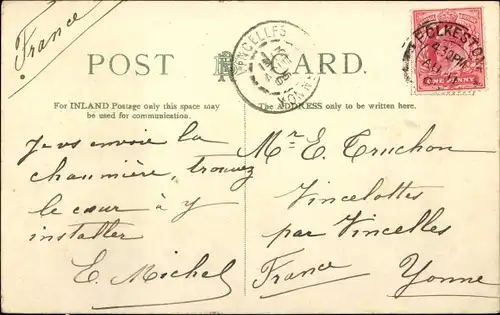 France
POST CARD.
VINCELLES
YONNE
FOLKESTONE
ONE PENNY
For INLAND Postage only this space may
be used for communication.
The ADDRESS only to be written here.
Je vs envoie la
chaumière, trouvez
le cœur à y
installer
E. Michel
Mr E. Truchon
Vincelottes
par Vincelles
France Yonne